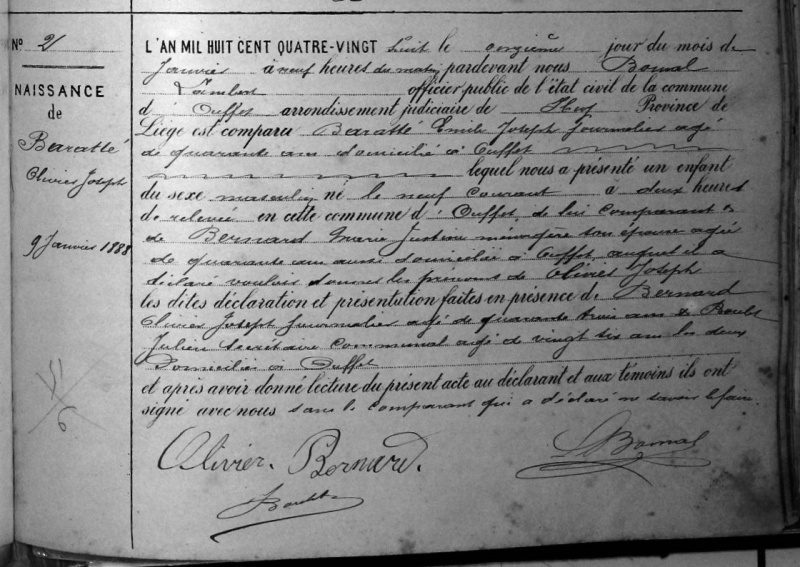 N° 2
NAISSANCE
de
Baratté
Olivier Joseph
9 Janvier 1888
L'AN MIL HUIT CENT QUATRE-VINGT huit le onzième jour du mois de
Janvier à neuf heures du matin pardevant nous Bomal
Lambert officier public de l'état civil de la commune
d' Ouffet arrondissement judiciaire de Huy Province de
Liége est comparu Baratté Emile Joseph Journalier agé
de quarante ans domicilié à Ouffet
lequel nous a présenté un enfant
du sexe masculin né le neuf courant à deux heures
de relevée en cette commune d' Ouffet, de lui comparant &
de Bernard Marie Justine ménagère son épouse agée
de quarante ans aussi domiciliée à Ouffet, auquel il a
déclaré vouloir donner les prénoms de Olivier Joseph
les dites déclaration et présentution faites en présence de Bernard
Olivier Joseph Journalier agé de quarante trois ans &
Julien Secrétaire Communal agé de vingt six ans les deux
domiciliés à Ouffet
et après avoir donné lecture du présent acte au déclarant et aux témoins ils ont
signé avec nous sans le comparant qui a déclaré ne savoir le faire.
Olivier. Bernard.
L Bomal